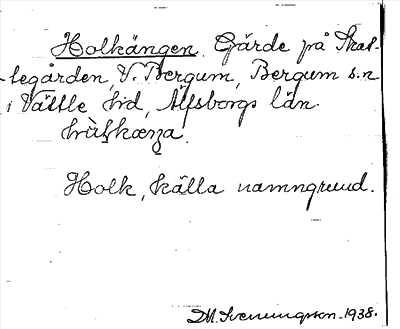 Holkängen. Gärde på Skat-
tegården, V. Bergum, Bergum s:n
i Vättle hd, Älfsborgs län.
Holk, källa namngrund.
D.M. Svenningson. 1938.